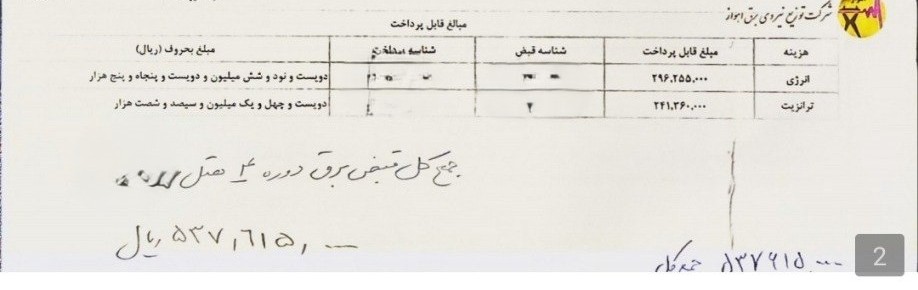 شرکت توزیع نیروی برق اهواز
مبالغ قابل پرداخت
هزینه مبلغ قابل پرداخت شناسه قبض شناسه پرداخت مبلغ بحروف (ریال)
انرژی ۲۹۶,۲۵۵,۰۰۰ دویست و نود و شش میلیون و دویست و پنجاه و پنج هزار
ترانزیت ۲۴۱,۳۶۰,۰۰۰ ۲ دویست و چهل و یک میلیون و سیصد و شصت هزار
جمع کل قبض برق دوره ۴ هتل
۵۳۷,۶۱۵,۰۰۰ ریال
جمع کل ۵۳۷۶۱۵۰۰۰
2